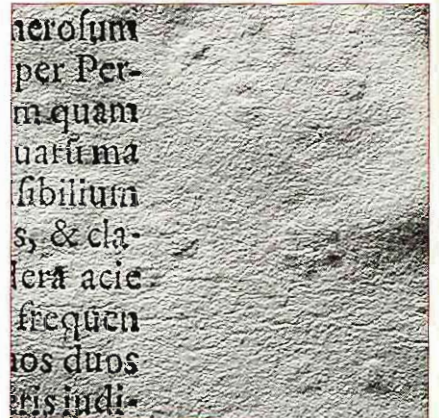 neroſum
per Per-
m quam
uarū ma
ſibilium
s, & cla-
dera acie
frequen
nos duos
eris indi-